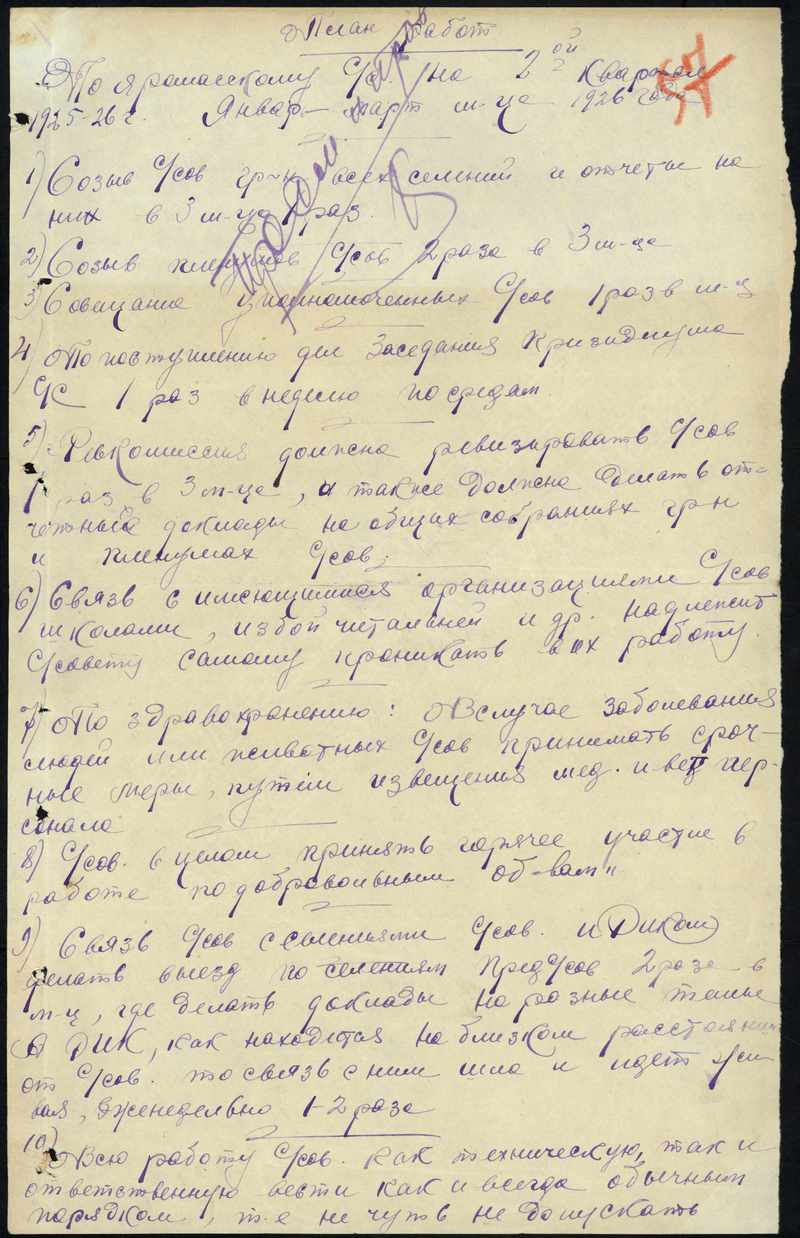 План работ
По Яромасскому С/с. на 2ой квартал
1925-26 г. Январ-март м-це 1926 года
1) Созыв С/сов гр-н всех селений и отчеты на
них в 3 м-ца 1 раз.
2) Созыв пленумов С/сов 2 раза в 3 м-ца
3) Совещание уполномоченных С/сов 1 раз в м-ц
4) По поступлению дел Заседания президиума
С/С 1 раз в неделю по средам
5) Ревкомиссия должна ревизировать С/сов
1 раз в 3 м-ца, а также должна делать от-
четные доклады на общих собраниях гр-н
и пленумах С/сов.
6) Связь с имеющимися организациями С/сов
школами, избой читальней и др. надлежит
С/совету самому проникать в их работу.
7) По здравохранению: В случае заболевания
людей или животных С/сов принимать сроч-
ные меры, путем извещения мед. и вет пер-
сонала
8) С/сов. в целом принять горячее участие в
работе по добровольным об-вам"
9) Связь С/сов с селениями С/сов. и РИКом
делать выезд по селениям ПредС/сов 2 раза в
м-ц, где делать доклады на разные темы
А РИК, как находится на близком расстоянии
от С/сов. то связь с ним шла и идет
, еженедельно 1-2 раза
10) Всю работу С/сов. как техническую, так и
ответственную вести как и всегда обычным
порядком, т-е не чуть не допускать